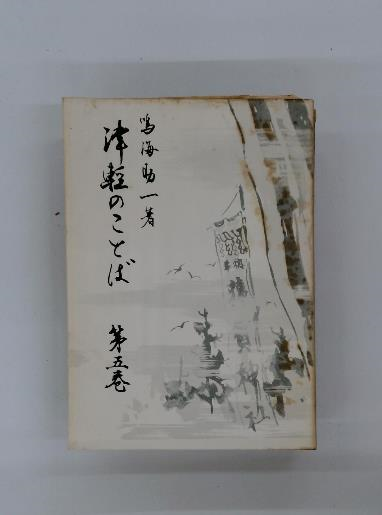 鳴海助一著
津軽のことば
第五巻